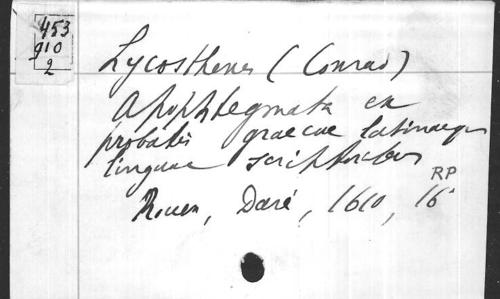 453
910
2
Lycosthenes (Conrad)
Apophtegmata ex
probatis graecae latinaeque
linguae scriptoribus
RP
Rouen, Daré, 1610, 16°